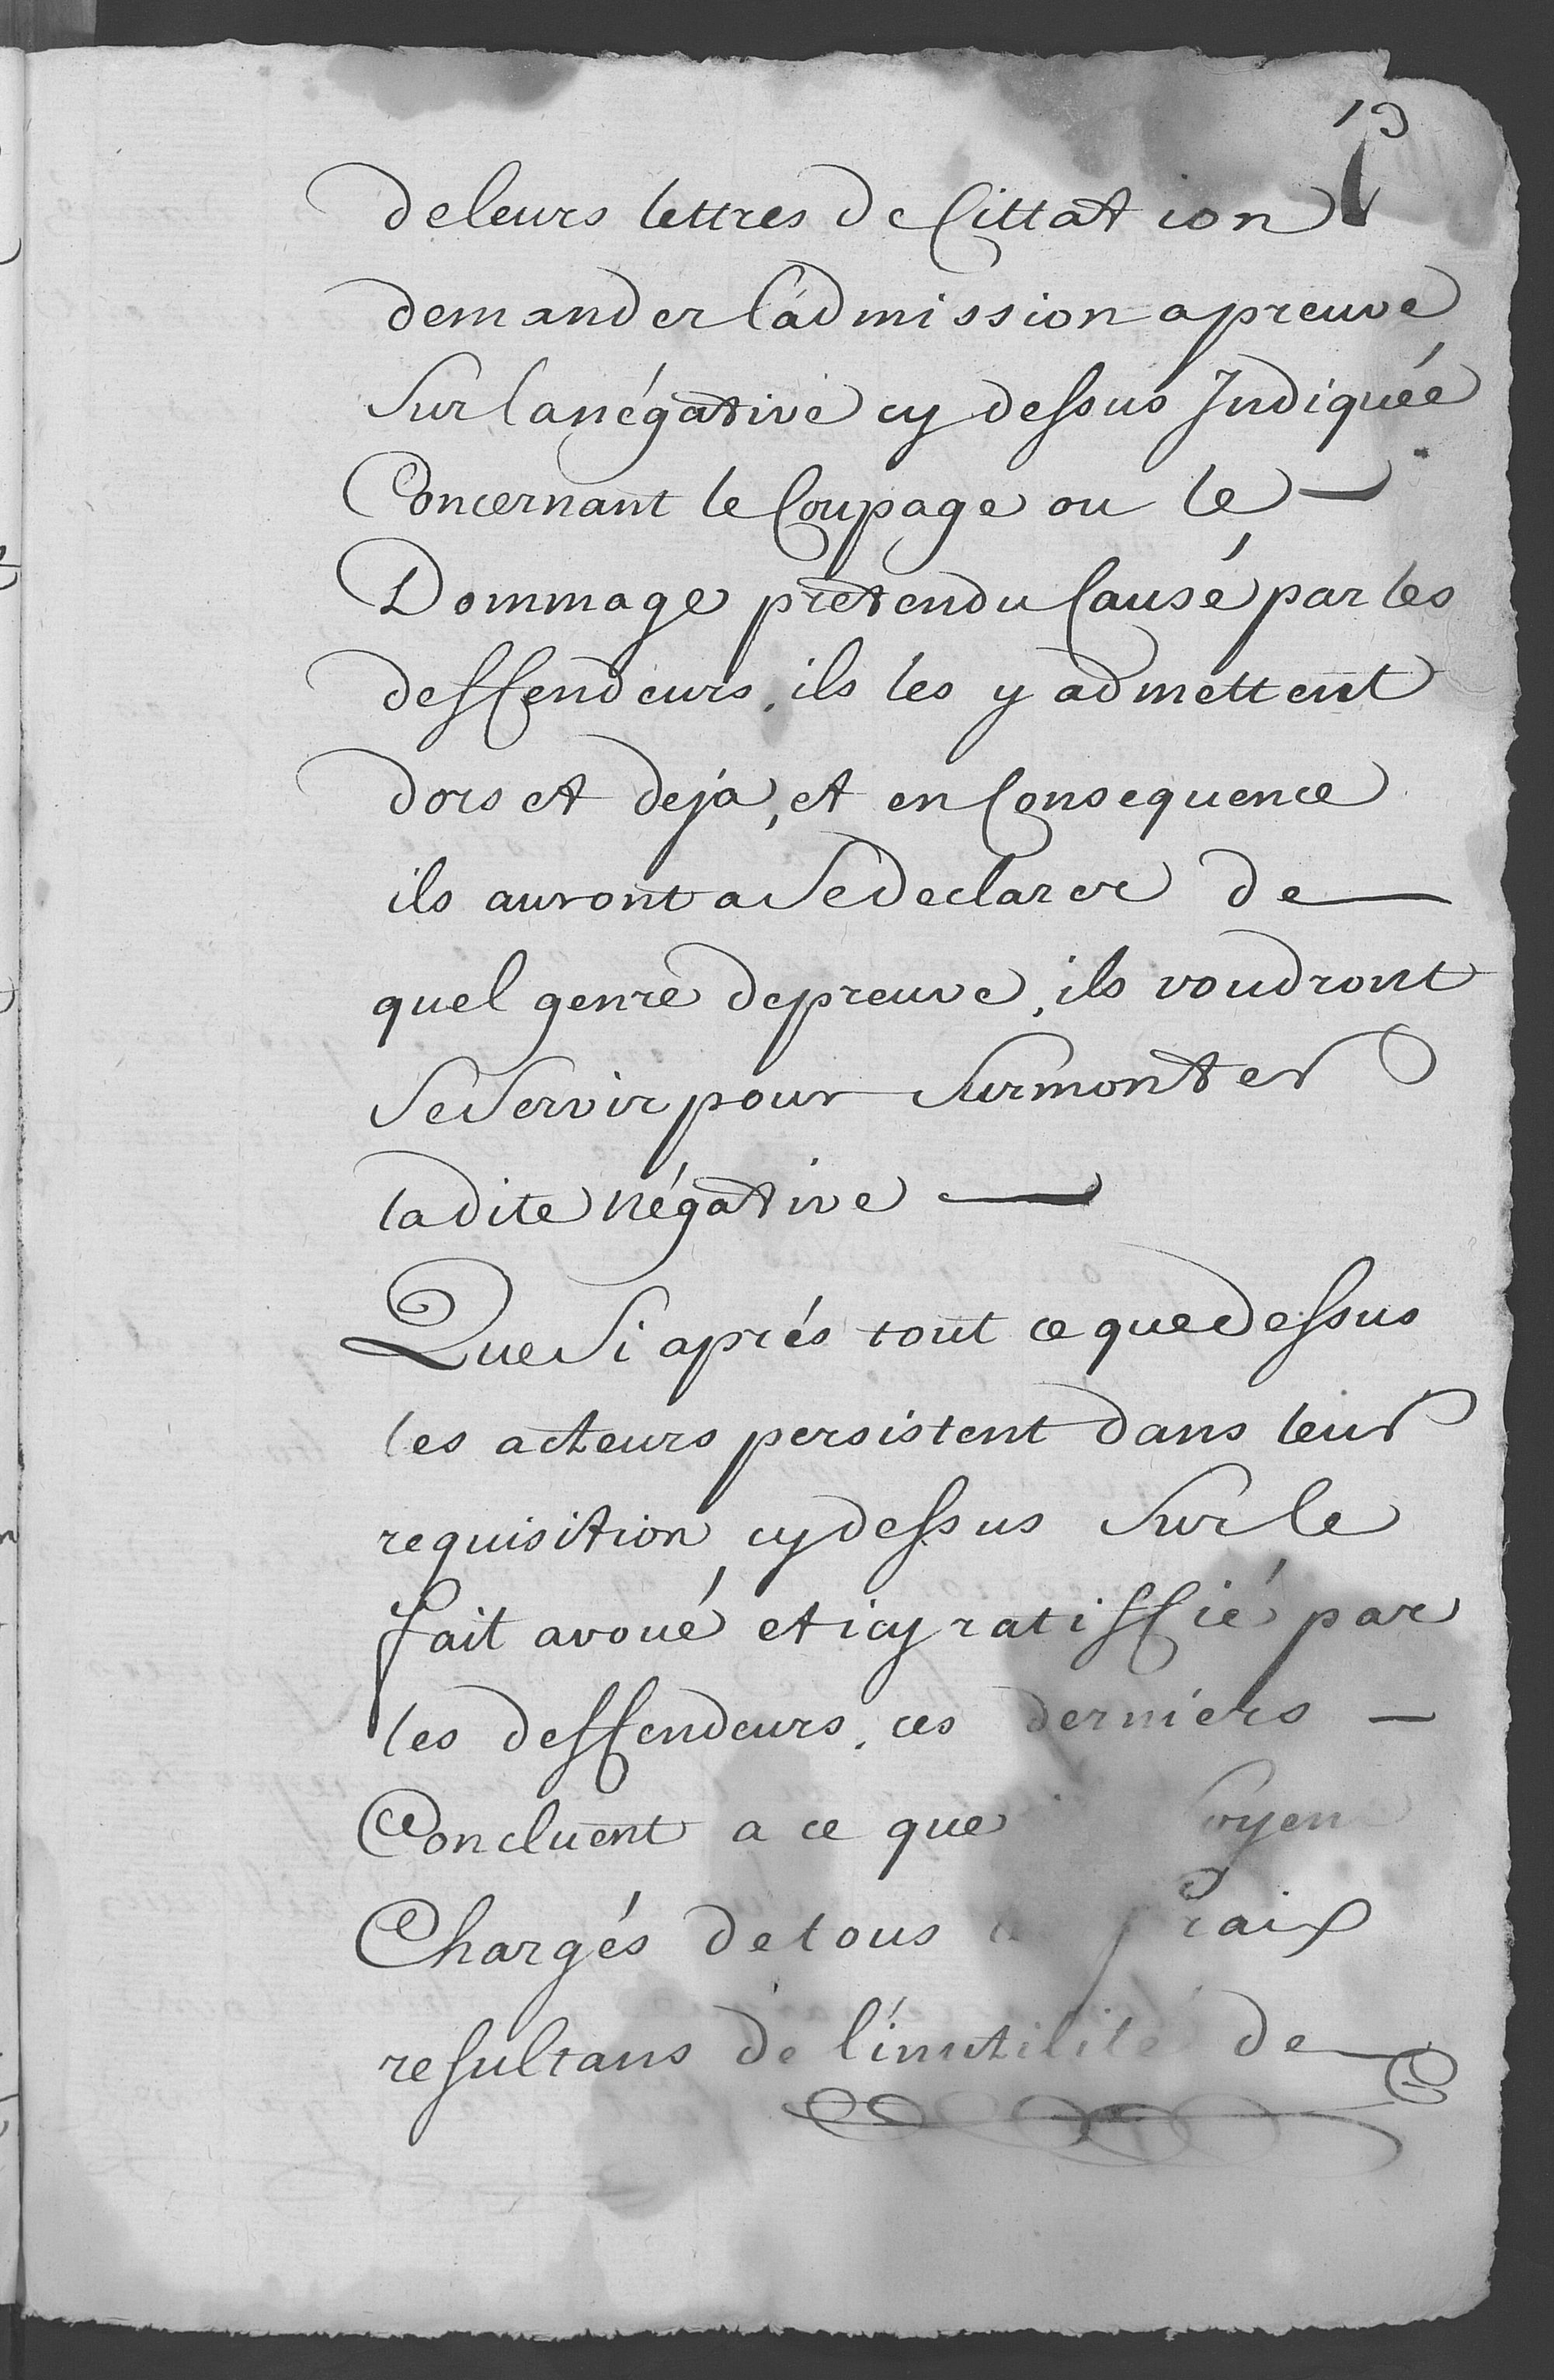 13
de leurs lettres de Cittation
demander l'admission a preuve
Sur la négative cy dessus Indiquée
Concernant le Coupage ou le —
Dommage prétendu Causé par les
deffendeurs, ils les y admettent
dors et deja, et en Consequence
ils auront a Se declarer de —
quel genre de preuve, ils voudront
Se Servir pour Surmonter
ladite négative —
Que Si aprés tout ce que dessus
les acteurs persistent dans leur
requisition cy dessus Sur le
fait avoué et icy ratiffié par
les deffendeurs, ces derniers —
Concluent a ce que
Chargés de tous fraix
resultans de l'inutilité de —